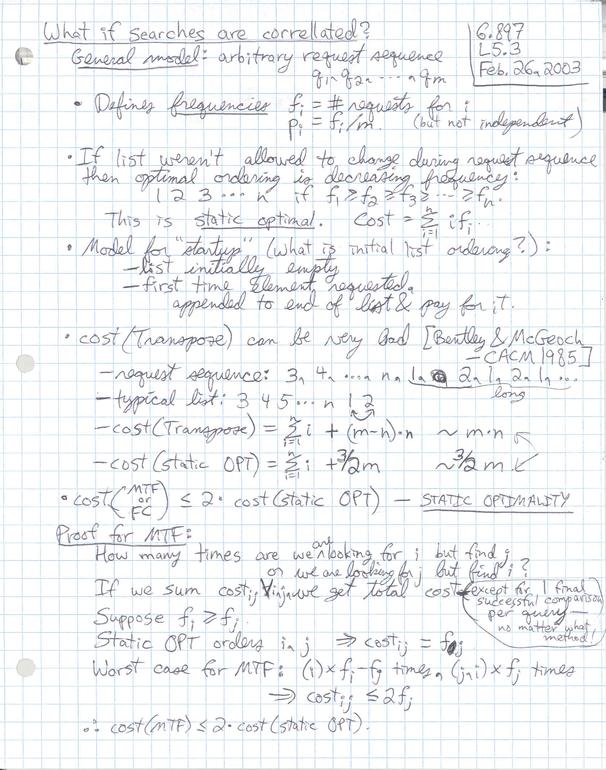 What if searches are correllated?
6.897
L5.3
Feb. 26, 2003
General model: arbitrary request sequence
q1, q2, ..., qm
• Defines frequencies fi = # requests for i
pi = fi/m. (but not independent)
• If list weren't allowed to change during request sequence
then optimal ordering is decreasing frequency:
1 2 3 ... n if f1 ≥ f2 ≥ f3 ≥ ... ≥ fn.
This is static optimal. Cost = Σ_{i=1}^{n} i fi.
• Model for "startup" (what is initial list orderong?):
– list initially empty
– first time element requested,
appended to end of list & pay for it.
• cost(Transpose) can be very bad [Bentley & McGeoch
– CACM 1985]
– request sequence: 3, 4, ..., n, 1, 2, 1, 2, 1, ...
long
– typical list: 3 4 5 ... n 1 2
– cost(Transpose) = Σ_{i=1}^{n} i + (m-n)·n ~ m·n
– cost(static OPT) = Σ_{i=1}^{n} i + 3/2 m ~ 3/2 m
• cost(MTF or FC) ≤ 2· cost(static OPT) – STATIC OPTIMALITY
Proof for MTF:
How many times are we are looking for i but find j
or we are looking for j but find i?
If we sum cost_ij ∀i,j, we get total cost
except for 1 final
successful comparison
per query –
no matter what
method!
Suppose fi ≥ fj.
Static OPT orders i, j ⇒ cost_ij = fj
Worst case for MTF: (i) × fi - fj times, (j,i) × fj times
⇒ cost_ij ≤ 2fj
∴ cost(MTF) ≤ 2· cost(static OPT).